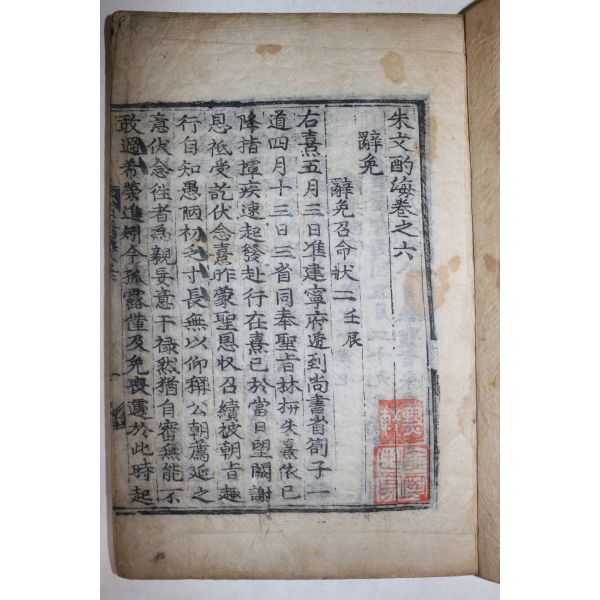 朱文酌海卷之六
辭免
辭免召命狀二 壬辰
右熹五月三日准建寧府遞到尚書省箚子一
道四月十三日三省同奉聖旨林枅朱熹依已
降指揮疾速起發赴行在熹已於當日望闕謝
恩祗受訖伏念熹昨蒙聖恩収召續被朝旨趣
行自知愚陋初乏寸長無以仰稱公朝薦延之
意伏念徃者為親妄意干禄然猶自審無能不
敢過希榮進矧今孤露僅及免喪還於此時起